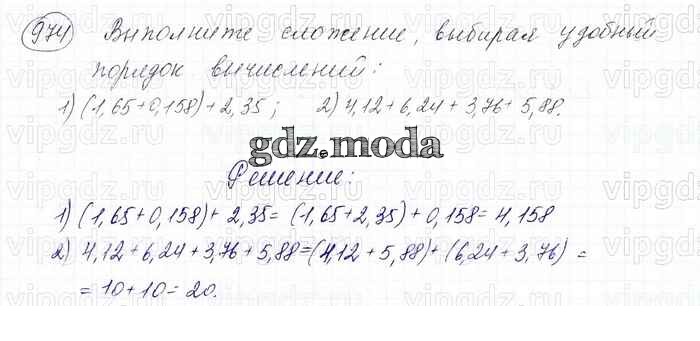 974 Выполните сложение, выбирая удобный
порядок вычислений:
1) (1,65+0,158)+2,35; 2) 4,12+6,24+3,76+5,88.
gdz.moda
Решение:
1) (1,65+0,158)+2,35=(1,65+2,35)+0,158=4,158
2) 4,12+6,24+3,76+5,88=(4,12+5,88)+(6,24+3,76)=
=10+10=20.